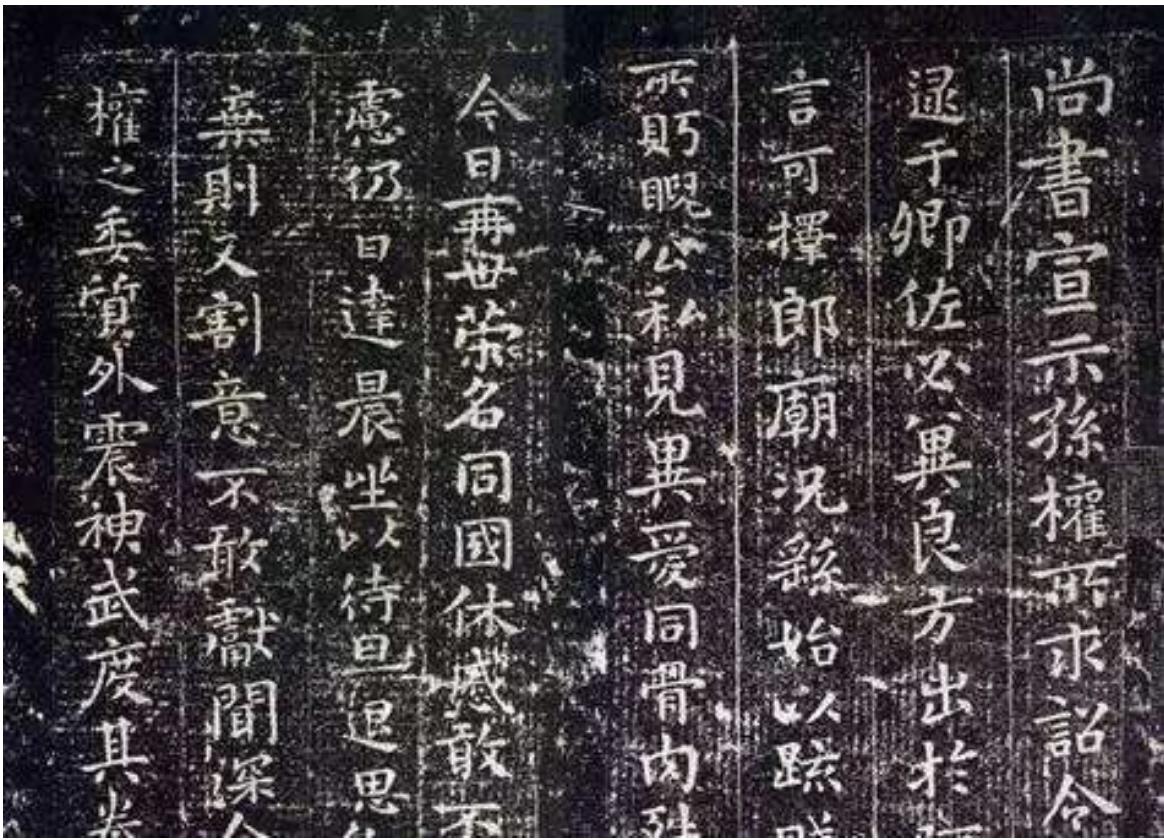 尚書宣示孫權所求詔令
逮于卿佐必兾良方出於
言可擇郎廟況繇始以䟽
所眄睨公私見異愛同骨肉殊
今日再世荣名同國休慼敢不
慮仍日達晨坐以待旦退思
棄則又割意不敢獻聞深
權之委質外震神武度其拳